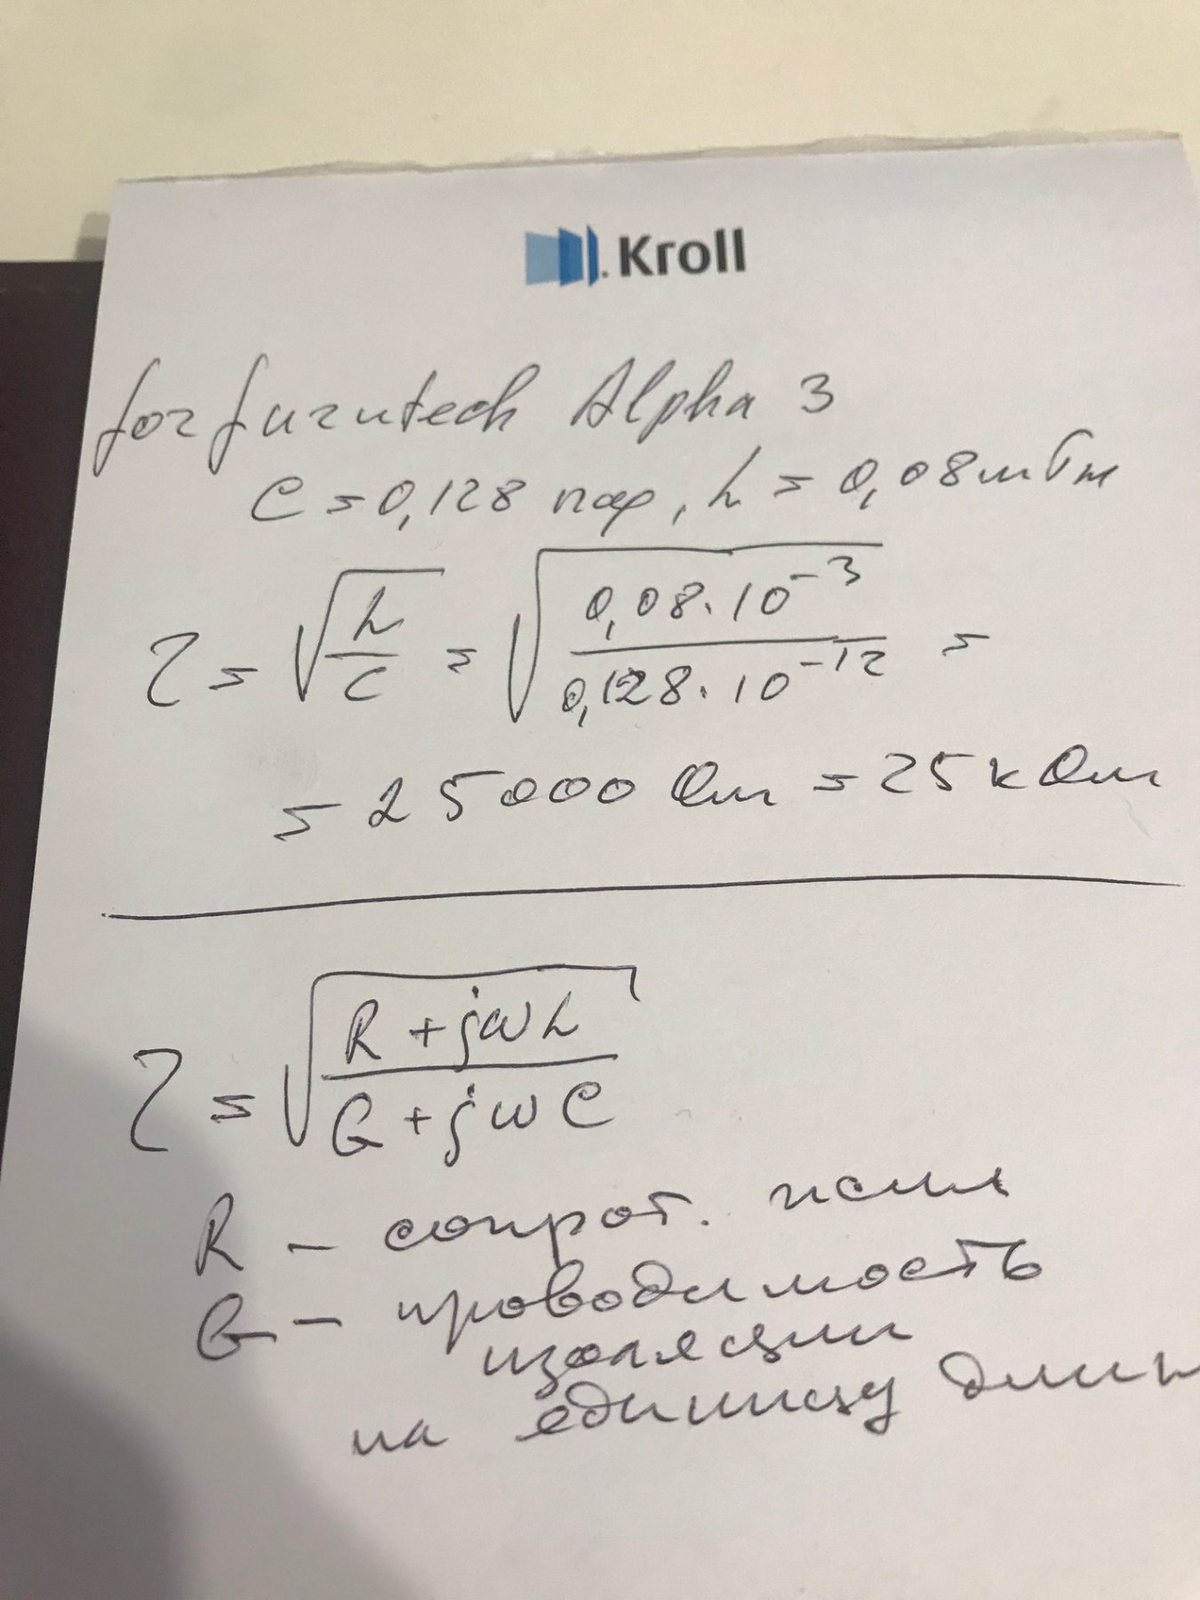 Kroll
for furutech Alpha 3
C = 0,128 пф, L = 0,08 мГн
Z = √(L/C) = √(0,08·10⁻³/0,128·10⁻¹²) =
= 25000 Ом = 25 кОм
Z = √(R + jωL/G + jωC)
R – сопрот.
G – проводимость
изоляции
на единицу длины